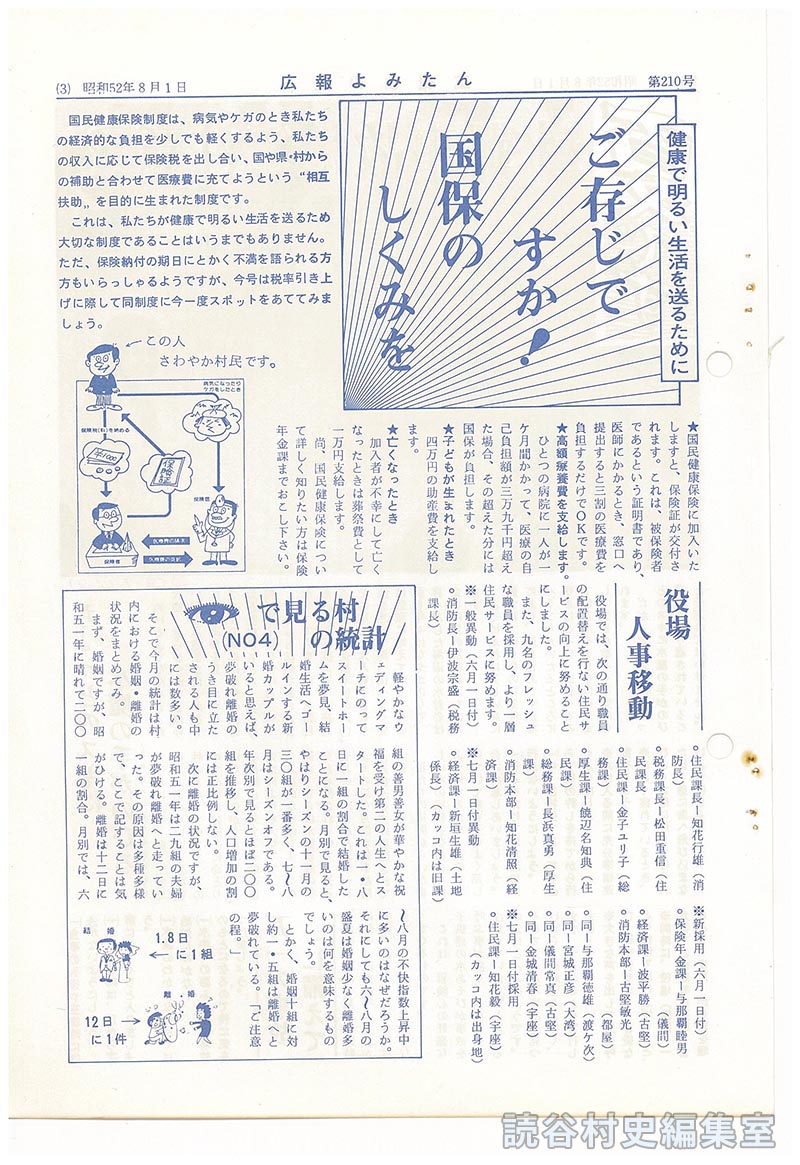 (3) 昭和52年8月1日
広報よみたん
第210号
健康で明るい生活を送るために
ご存じで
すか!
国保の
しくみを
国民健康保険制度は、病気やケガのとき私たち
の経済的な負担を少しでも軽くするよう、私たち
の収入に応じて保険税を出し合い、国や県・村から
の補助と合わせて医療費に充てようという“相互
扶助„を目的に生まれた制度です。
これは、私たちが健康で明るい生活を送るため
大切な制度であることはいうまでもありません。
ただ、保険納付の期日にとかく不満を語られる方
方もいらっしゃるようですが、今号は税率引き上
げに際して同制度に今一度スポットをあててみま
しょう。
この人
さわやか村民です。
病気になったり
ケガをしたとき
保険税(料)を納める
¥1000
保険証
保険医
保険者
医療費の請求
★国民健康保険に加入いた
しますと、保険証が交付さ
れます。これは、被保険者
であるという証明書であり、
医師にかかるとき、窓口へ
提出すると三割の医療費を
負担するだけでOKです。
★高額療養費を支給します。
ひとつの病院に一人が一
ケ月間かかって、医療の自
己負担額が三万九千円超え
た場合、その超えた分には
国保が負担します。
★子どもが生まれたとき
四万円の助産費を支給し
ます。
★亡くなったとき
加入者が不幸にして亡く
なったときは葬祭費として
一万円支給します。
尚、国民健康保険につい
て詳しく知りたい方は保険
年金課までおこし下さい。
役場
人事移動
役場では、次の通り職員
の配置替えを行ない住民サ
ービスの向上に努めること
にしました。
また、九名のフレッシュ
な職員を採用し、より一層
住民サービスに努めます。
※一般異動(六月一日付)
○消防長―伊波宗盛(税務
課長)
○住民課長―知花行雄(消
防長)
税務課長―松田重信(住
民課長)
○住民課―金子ユリ子(総
務課)
○厚生課―饒辺名知典(住
民課)
○総務課―長浜真勇(厚生
課)
○消防本部―知花清照(経
済課)
※七月一日付異動
○経済課―新垣生雄(土地
係長)(カッコ内は旧課)
※新採用(六月一日付)
○保険年金課―与那覇睦男
(儀間)
○経済課―波平勝(古堅)
○消防本部―古堅敏光
(都屋)
○同―与那覇徳雄(渡ケ次)
○同―宮城正彦(大湾)
○同―儀間常真(古堅)
○同―金城清春(宇座)
※七月一日付採用
○住民課―知花毅(宇座)
(カッコ内は出身地)
で見る村
の統計
(NO4)
軽やかなウ
ェディングマ
ーチにのって
スイートホー
ムを夢見、結
婚生活へゴー
ルインする新
婚カップルが
いると思えば、
夢破れ離婚の
うき目に立た
される人も中
には数多い。
そこで今月の統計は村
内における婚姻・離婚の
状況をまとめてみ。
まず、婚姻ですが、昭
和五一年に晴れて二〇〇
組の善男善女が華やかな祝
福を受け第二の人生へとス
タートした。これは一・八
日に一組の割合で結婚した
ことになる。月別で見ると、
やはりシーズンの十一月の
三〇組が一番多く、七〜八
月はシーズンオフである。
年次別で見るとほぼ二〇〇
組を推移し、人口増加の割
には正比例しない。
次に離婚の状況ですが、
昭和五一年は二九組の夫婦
が夢破れ離婚へと走ってい
った。その原因は多種多様
で、ここで記することは気
がひける。離婚は十二日に
一組の割合。月別では、六
〜八月の不快指数上昇中
に多いのはなぜだろうか。
それにしても六〜八月の
盛夏は婚姻少なく離婚多
いのは何を意味するもの
でしょう。
とかく、婚姻十組に対
し約一・五組は離婚へと
夢破れている。「ご注意
の程。」
結婚
1.8日
に1組
離婚
12日
に1件
読谷村史編集室